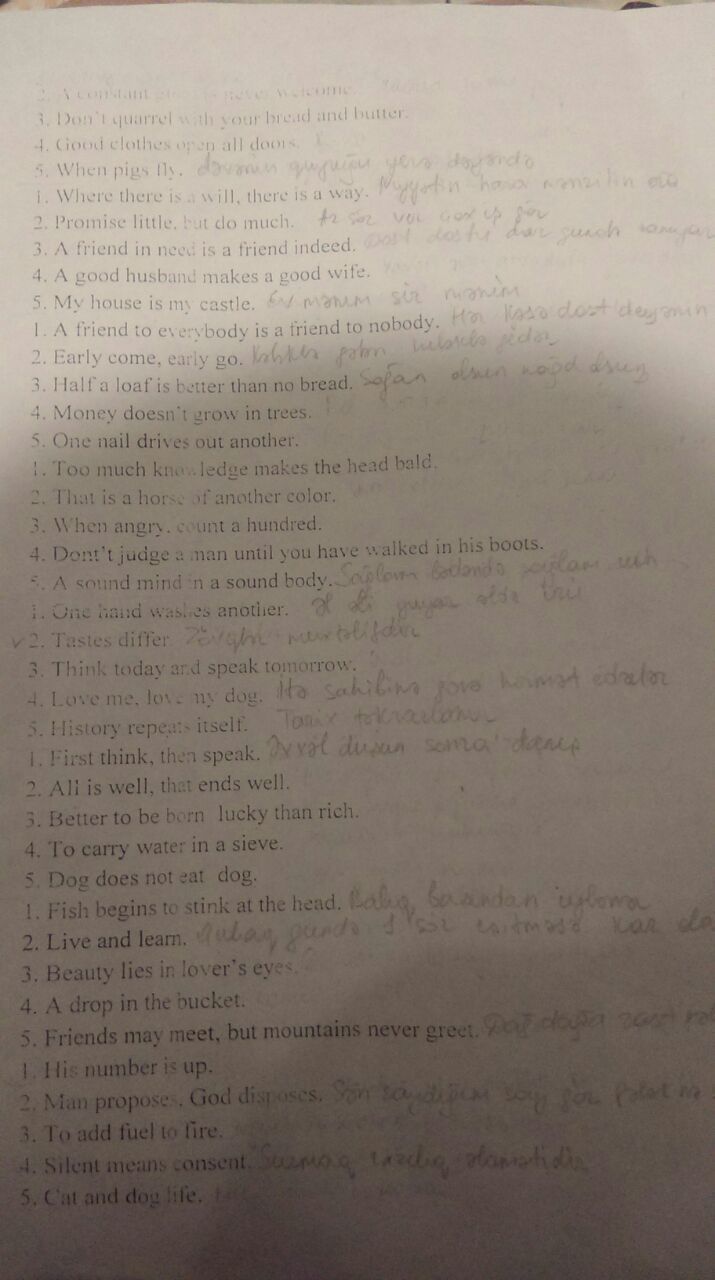 2. A constant guest is never welcome.
3. Don't quarrel with your bread and butter.
4. Good clothes open all doors.
5. When pigs fly. dəvənin quyruğu yerə dəyəndə
1. Where there is a will, there is a way. hara mənzilin
2. Promise little, but do much. Az söz ver çox iş gör
3. A friend in need is a friend indeed. Dost dostu dar gündə
4. A good husband makes a good wife.
5. My house is my castle. Ev mənim sir mənim
1. A friend to everybody is a friend to nobody. Hər kəsə dost deyənin
2. Early come, early go. gələn gedər
3. Half a loaf is better than no bread. Soğan olsun nağd olsun
4. Money doesn't grow in trees.
5. One nail drives out another.
1. Too much knowledge makes the head bald.
2. That is a horse of another color.
3. When angry, count a hundred.
4. Dont't judge a man until you have walked in his boots.
5. A sound mind in a sound body. Sağlam bədəndə sağlam ruh
1. One hand washes another. Əl əli yuyar əldə üzü
2. Tastes differ. müxtəlifdir
3. Think today and speak tomorrow.
4. Love me, love my dog. sahibinə görə hörmət edərlər
5. History repeats itself. Tarix təkrarlanır
1. First think, then speak. Əvvəl düşün sonra danış
2. All is well, that ends well.
3. Better to be born lucky than rich.
4. To carry water in a sieve.
5. Dog does not eat dog.
1. Fish begins to stink at the head. Balıq başından iylənər
2. Live and learn. Qulaq gündə 1 söz eşitməsə kar
3. Beauty lies in lover's eyes.
4. A drop in the bucket.
5. Friends may meet, but mountains never greet. Dağ dağa rast
1. His number is up.
2. Man proposes, God disposes. Sən saydığını say gör fələk nə
3. To add fuel to fire.
4. Silent means consent. Susmaq razılıq əlamətidir
5. Cat and dog life.